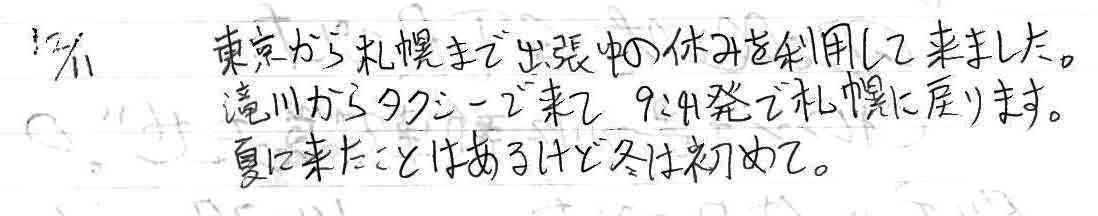 12/11 東京から札幌まで出張中の休みを利用して来ました。
滝川からタクシーで来て 9:41発で札幌に戻ります。
夏に来たことはあるけど冬は初めて。